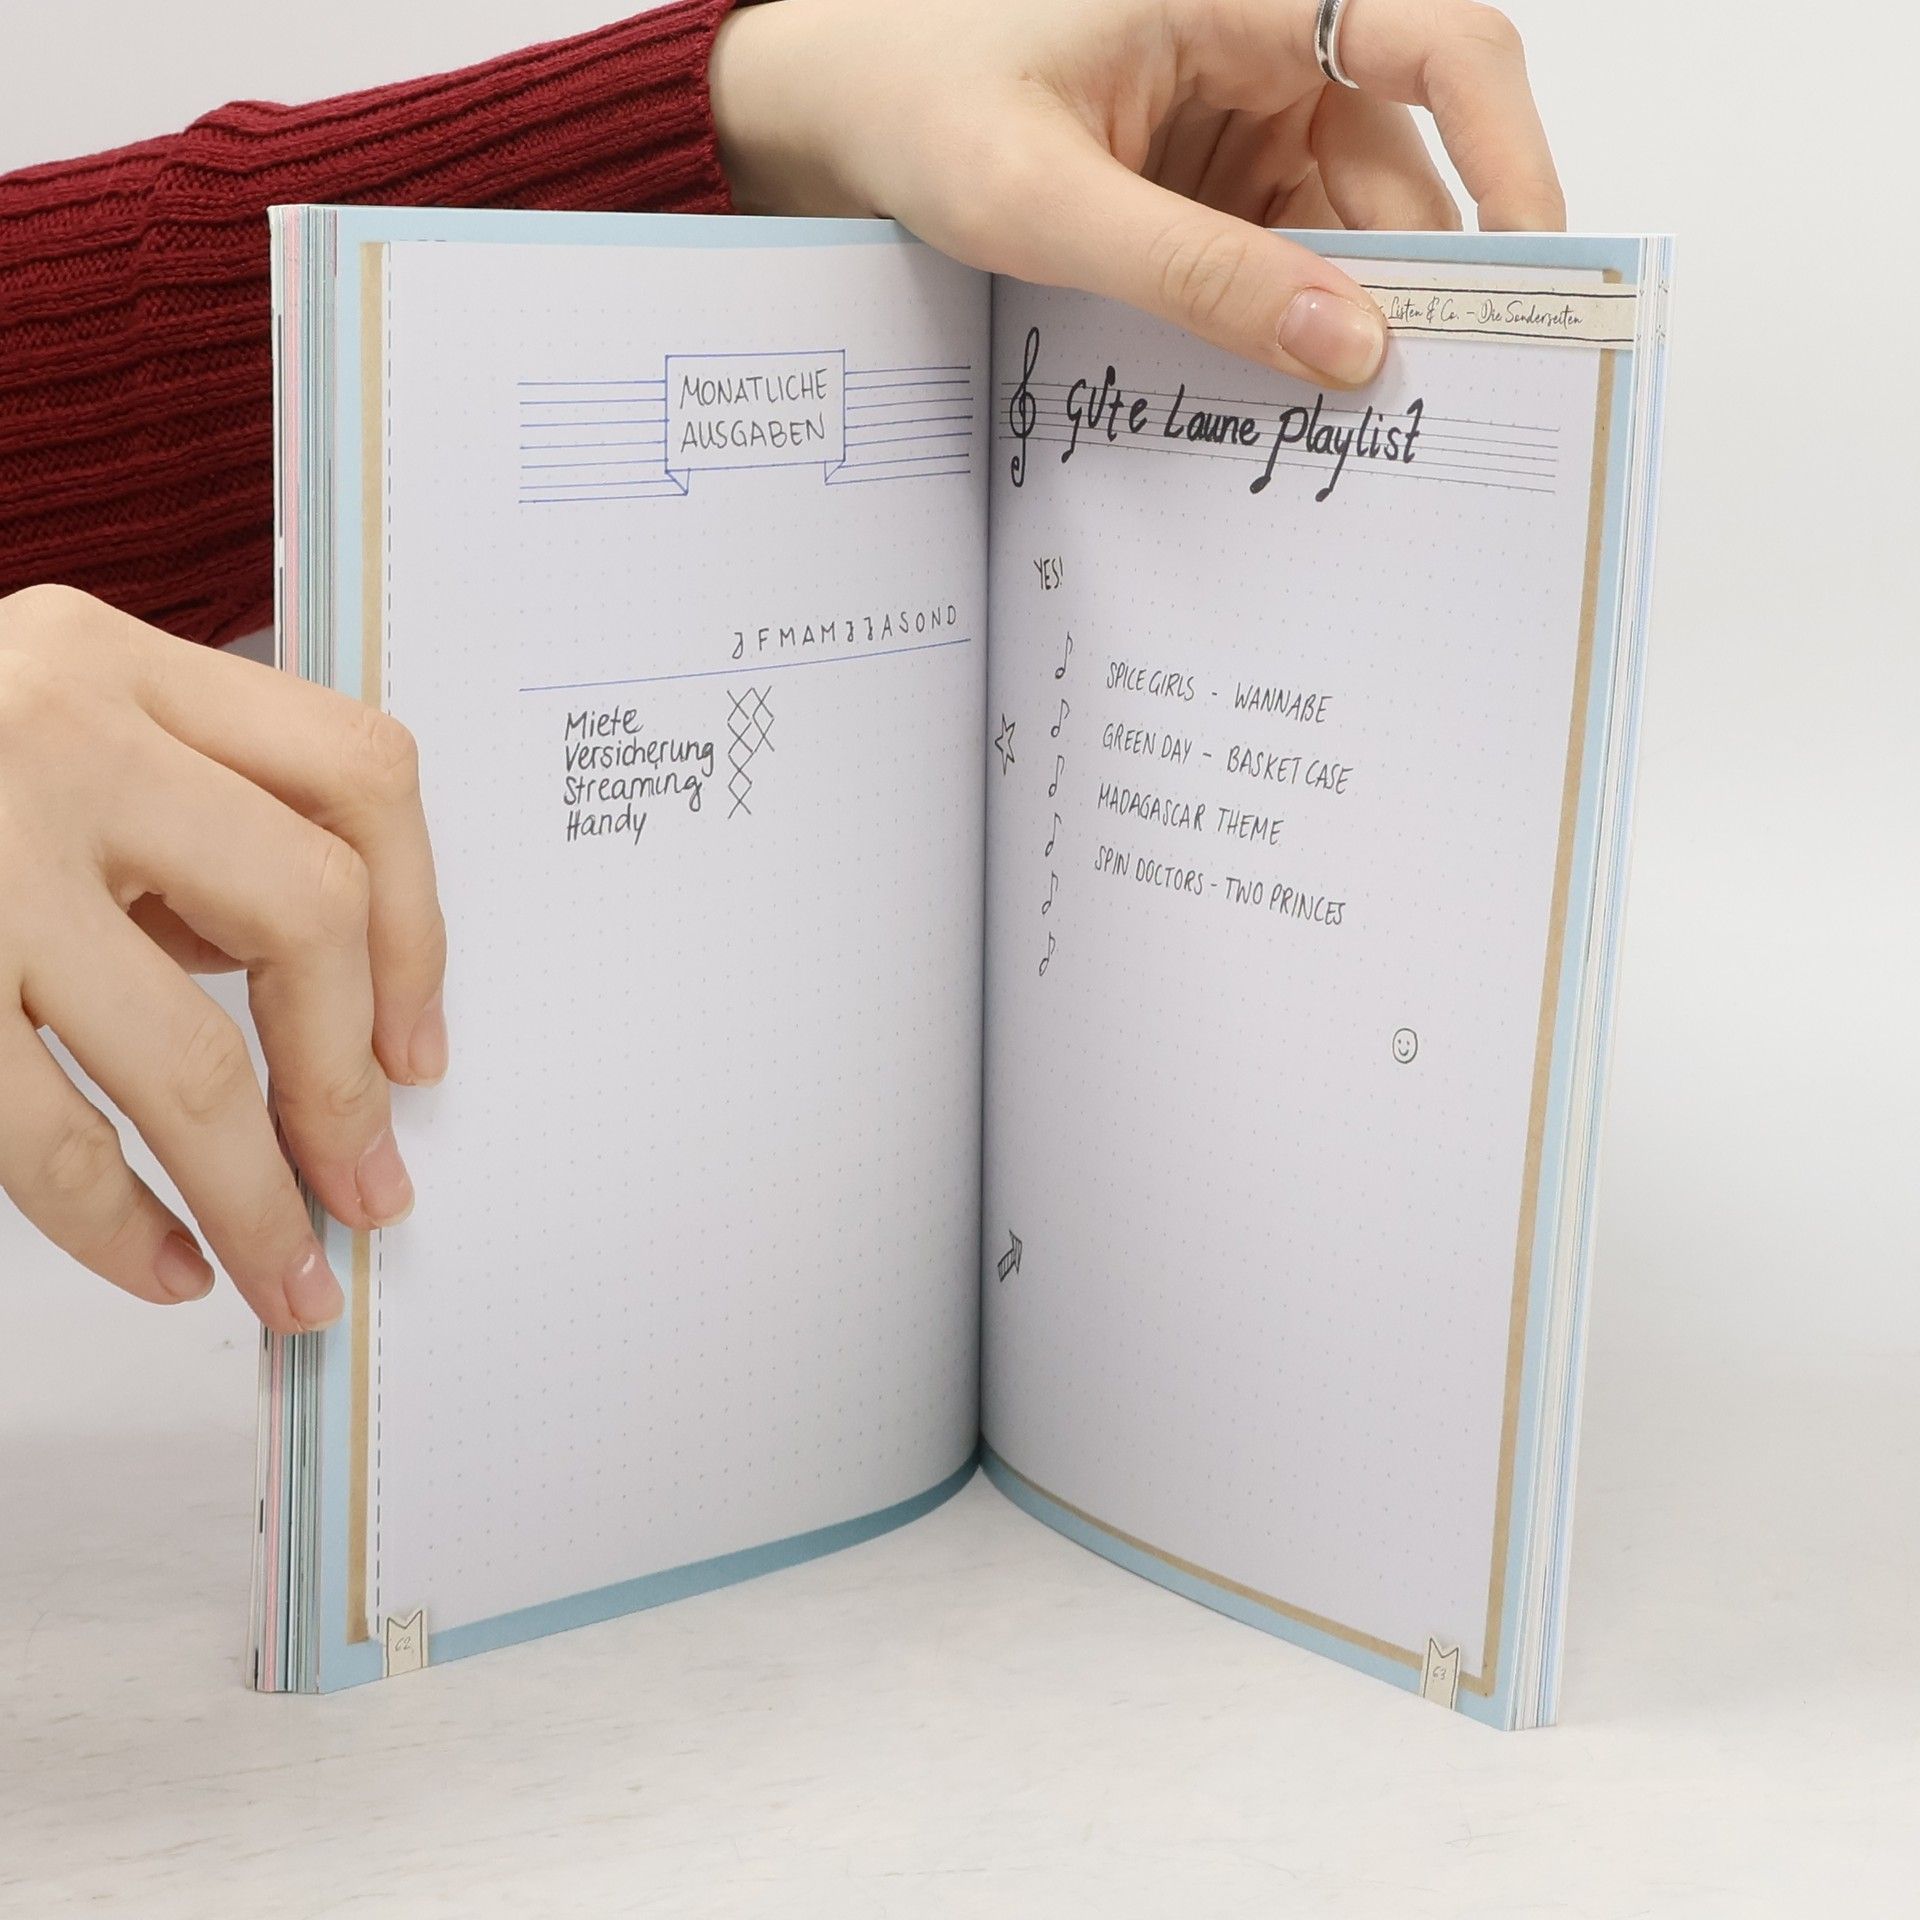 MONATLICHE
AUSGABEN
J F M A M J J A S O N D
Miete
Versicherung
Streaming
Handy
62
Listen & Co. – Die Sonderseiten
Gute Laune Playlist
YES!
SPICE GIRLS - WANNABE
GREEN DAY - BASKET CASE
MADAGASCAR THEME
SPIN DOCTORS - TWO PRINCES
63